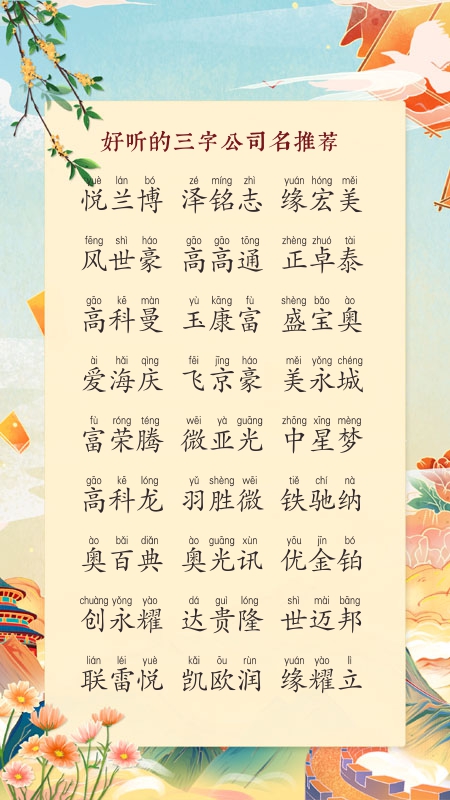 好听的三字公司名推荐
yuè lán bó zé míng zhì yuán hóng měi
悦兰博 泽铭志 缘宏美
fēng shì háo gāo gāo tōng zhèng zhuó tài
风世豪 高高通 正卓泰
gāo kē màn yù kāng fù shèng bǎo ào
高科曼 玉康富 盛宝奥
ài hǎi qìng fēi jīng háo měi yǒng chéng
爱海庆 飞京豪 美永城
fù róng téng wēi yà guāng zhōng xīng mèng
富荣腾 微亚光 中星梦
gāo kē lóng yǔ shèng wēi tiě chí nà
高科龙 羽胜微 铁驰纳
ào bǎi diǎn ào guāng xùn yōu jīn bó
奥百典 奥光讯 优金铂
chuàng yǒng yào dá guì lóng shì mài bāng
创永耀 达贵隆 世迈邦
lián léi yuè kǎi ōu rùn yuán yào lì
联雷悦 凯欧润 缘耀立